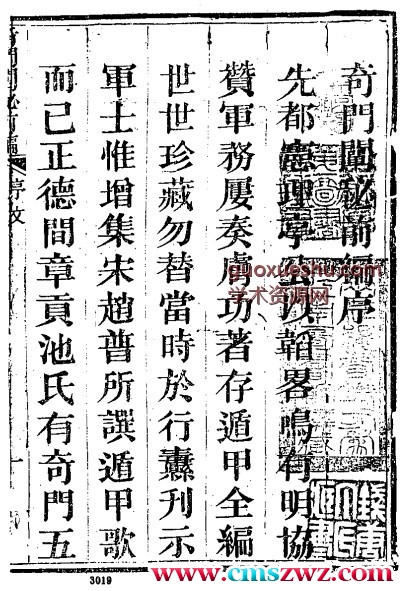 奇門闡秘前編序
先都憲理亭公以韜畧鳴有明協
贊軍務屢奏膚功著存遁甲全編
世世珍藏勿替當時於行纛刊示
軍士惟增集宋趙普所譔遁甲歌
而已正德間章貢池氏有奇門五
序文
guoxueshu.com
学术资源网
3019
www.cmszwz.com